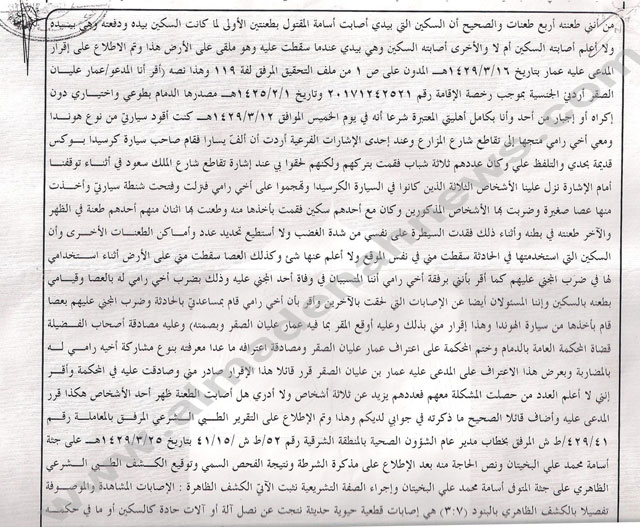 من أنني طعنته أربع طعنات والصحيح أن السكين التي بيدي أصابت أسامة المقتول بطعنتين الأولى لما كانت السكين بيده ودفعته وهي بيده
ولا أعلم أصابته السكين أم لا والأخرى أصابته السكين وهي بيدي عندما سقطت عليه وهو ملقى على الأرض هذا وتم الاطلاع على إقرار
المدعى عليه عمار بتاريخ ١٤٢٩/٣/١٦هـ المدون على ص ١ من ملف التحقيق المرفق لفة ١١٩ وهذا نصه (أقر أنا المدعو/عمار عليان
الصقر أردني الجنسية بموجب رخصة الإقامة رقم ٢٠١٧١٢٤٢٥٢١ وتاريخ ١٤٢٥/٢/١هـ مصدرها الدمام بطوعي واختياري دون
إكراه أو إجبار من أحد وأنا بكامل أهليتي المعتبرة شرعا أنه في يوم الخميس الموافق ١٤٢٩/٣/١٢هـ كنت أقود سيارتي من نوع هوندا
ومعي أخي رامي متجها إلى تقاطع شارع المزارع وعند إحدى الإشارات الفرعية أردت أن ألف يسارا فقام صاحب سيارة كرسيدا بوكس
قديمة بحدي والتلفظ علي وكان عددهم ثلاثة شباب فقمت بتركهم ولكنهم لحقوا بي عند إشارة تقاطع شارع الملك سعود في أثناء توقفنا
أمام الإشارة نزل علينا الأشخاص الثلاثة الذين كانوا في السيارة الكرسيدا وتهجموا على أخي رامي فنزلت وفتحت شنطة سيارتي وأخذت
منها عصا صغيرة وضربت بها الأشخاص المذكورين وكان مع أحدهم سكين فقمت بأخذها منه وطعنت بها اثنان منهم أحدهم طعنة في الظهر
والآخر طعنته في بطنه وأثناء ذلك فقدت السيطرة على نفسي من شدة الغضب ولا أستطيع تحديد عدد وأماكن الطعنات الأخرى وأن
السكين التي استخدمتها في الحادثة سقطت مني في نفس الموقع ولا أعلم عنها شئ وكذلك العصا سقطت مني على الأرض أثناء استخدامي
لها في ضرب المجني عليهم كما أقر بأنني برفقة أخي رامي أننا المتسببان في وفاة أحد المجني عليه وذلك بضرب أخي رامي له بالعصا وقيامي
بطعنه بالسكين وإننا المسئولان أيضا عن الإصابات التي لحقت بالآخرين وأقر بأن أخي رامي قام بمساعدتي بالحادثة وضرب المجني عليهم بعصا
قام بأخذها من سيارة الهوندا وهذا إقرار مني بذلك وعليه أوقع المقر بما فيه عمار عليان الصقر وبصمته) وعليه مصادقة أصحاب الفضيلة
قضاة المحكمة العامة بالدمام وختم المحكمة على اعتراف عمار عليان الصقر ومصادقة اعترافه ما عدا معرفته بنوع مشاركة أخيه رامي له
بالمضاربة وبعرض هذا الاعتراف على المدعى عليه عمار بن عليان الصقر قرر قائلا هذا الإقرار صادر مني وصادقت عليه في المحكمة وأقر
إنني لا أعلم العدد من حصلت المشكلة معهم فعددهم يزيد عن ثلاثة أشخاص ولا أدري هل أصابت الطعنة ظهر أحد الأشخاص هكذا قرر
المدعى عليه وأضاف قائلا الصحيح ما ذكرته في جوابي لديكم وهذا وتم الإطلاع على التقرير الطبي الشرعي المرفق بالمعاملة رقم
٤٢٩/٤١/ط ش المرفق بخطاب مدير عام الشؤون الصحية بالمنطقة الشرقية رقم ٥٢/ط ش /٤١/١٥ بتاريخ ١٤٢٩/٣/٢٥هـ على جثة
أسامة محمد علي البخيتان ونص الحاجة منه بعد الإطلاع على مذكرة الشرطة ونتيجة الفحص السمي وتوقيع الكشف الطبي الشرعي
الظاهري على جثة المتوفى أسامة محمد علي البخيتان وإجراء الصفة التشريحية نثبت الآتي الكشف الظاهرة : الإصابات المشاهدة والموصوفة
تفصيلا بالكشف الظاهري بالبنود (٣:٧) هي إصابات قطعية حيوية حديثة نتجت عن نصل آلة أو آلات حادة كالسكين أو ما في حكمه
almadeenahnews.com